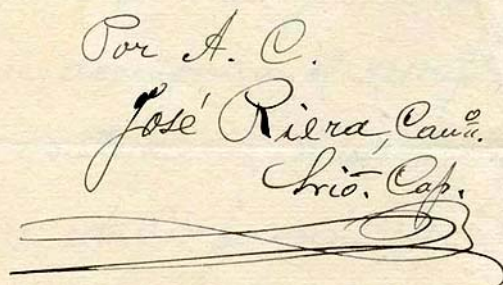 Por A. C.
José Riera, Canº.
Srió. Cap.